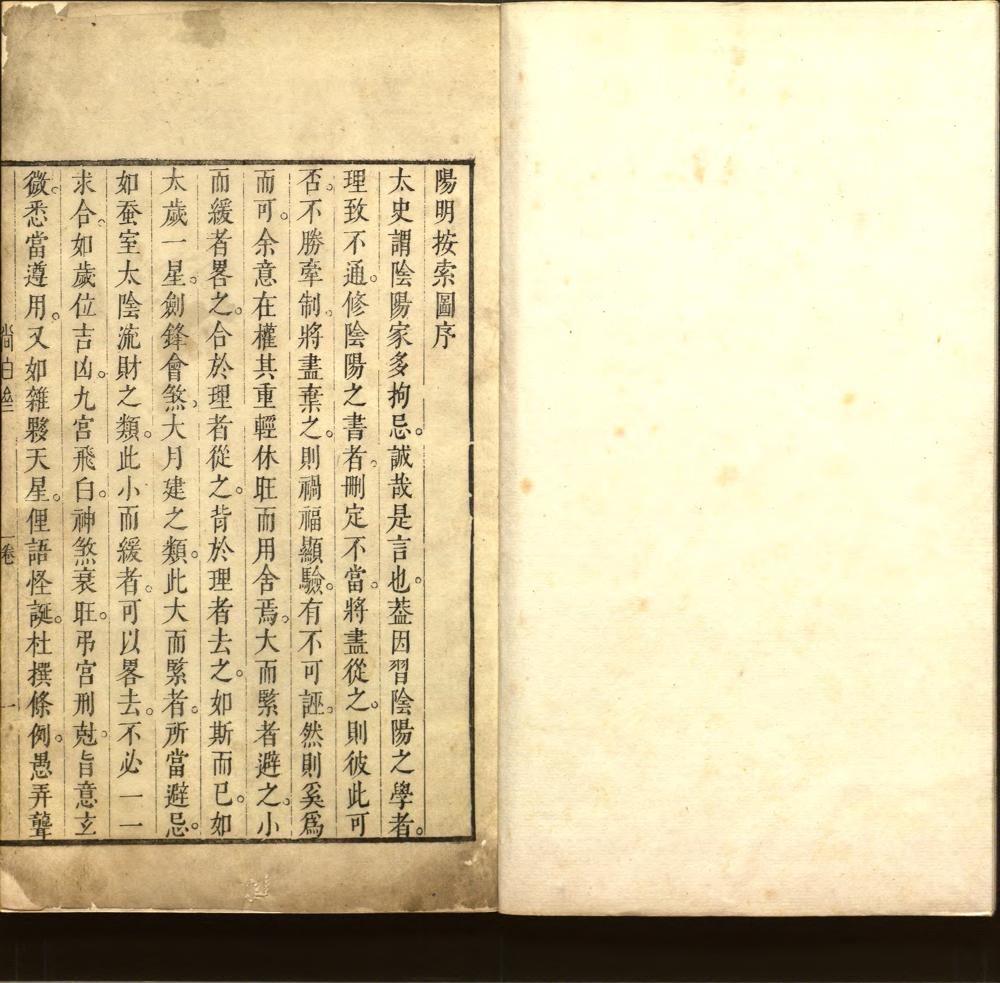 陽明按索圖序
太史謂陰陽家多拘忌。誠哉是言也。葢因習陰陽之學者。
理致不通。修陰陽之書者。刪定不當。將盡從之。則彼此可
否。不勝牽制。將盡棄之。則禍福顯驗。有不可誣。然則奚爲
而可。余意在權其重輕休旺而用舍焉。大而緊者避之。小
而緩者畧之。合於理者從之。背於理者去之。如斯而已。如
太歲一星。劍鋒會煞。大月建之類。此大而緊者。所當避忌。
如蚕室太陰流財之類。此小而緩者。可以畧去。不必一一
求合。如歲位吉凶。九宮飛白。神煞衰旺。吊宮刑尅。旨意玄
微。悉當遵用。又如雜夥天星。俚語怪誕。杜撰條例。愚弄聾
卷
一